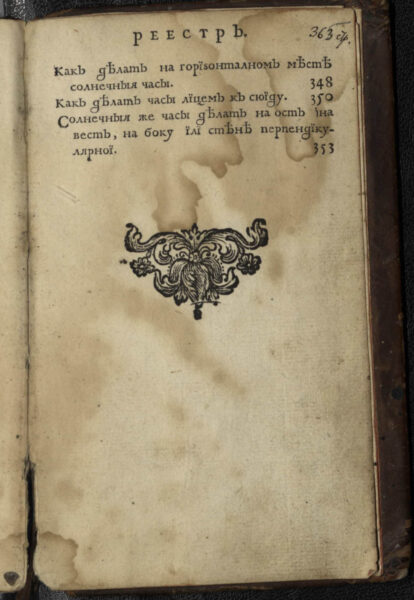 363 ср.
РЕЕСТРЪ.
Какъ дѣлать на горїзонталномъ мѣстѣ
солнечныя часы. 348
Какъ дѣлать часы лїцемъ къ сюїду. 350
Солнечныя же часы дѣлать на остъ їна
вестъ, на боку їлі стѣнѣ перпендїку-
лярної. 353